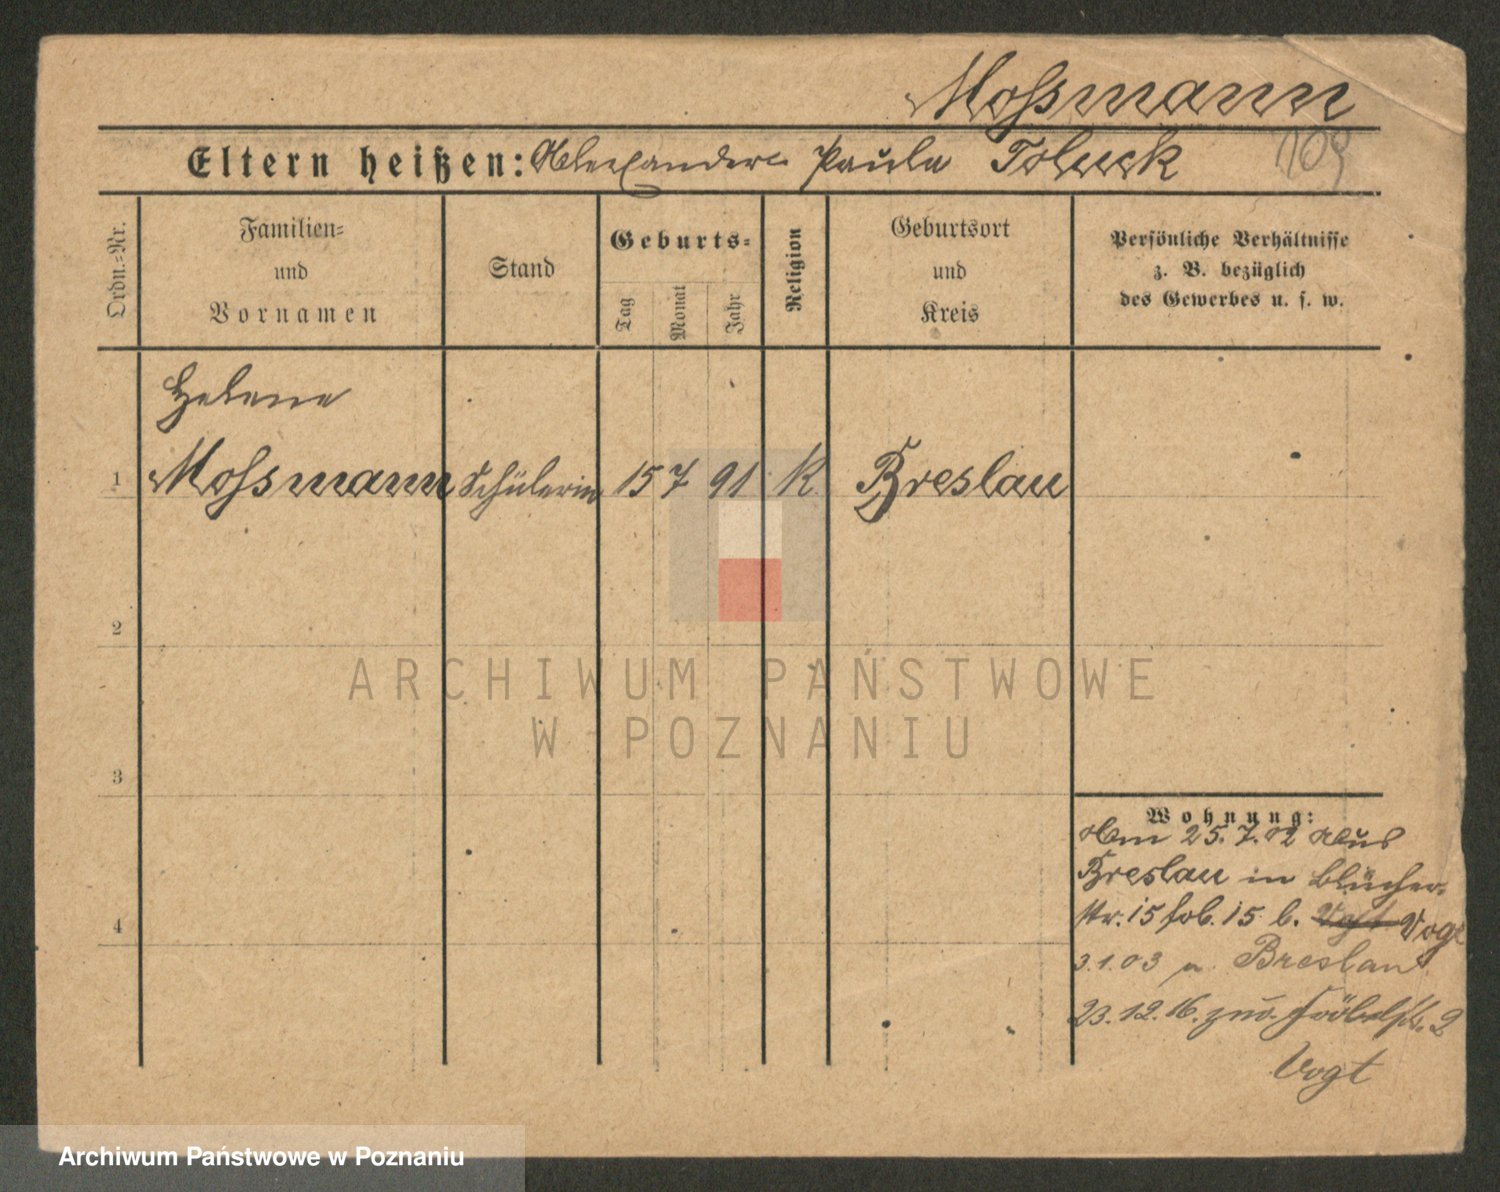 Moßmann
Eltern heißen: Alexander u. Paula Toluck
109
Ordn.-Nr.
Familien-
und
Vornamen
Stand
Geburts-
Tag
Monat
Jahr
Religion
Geburtsort
und
Kreis
Persönliche Verhältnisse
z. B. bezüglich
des Gewerbes u. s. w.
Helene
1 Moßmann Schülerin 15 7 91 K. Breslau
2
ARCHIWUM PAŃSTWOWE
W POZNANIU
3
Wohnung:
Am 25.7.02 aus
Breslau in Blücher-
str. 15 15 b. Vogt Vogt
4
3.1.03 n. Breslau
23.12.16. 2
Vogt
Archiwum Państwowe w Poznaniu